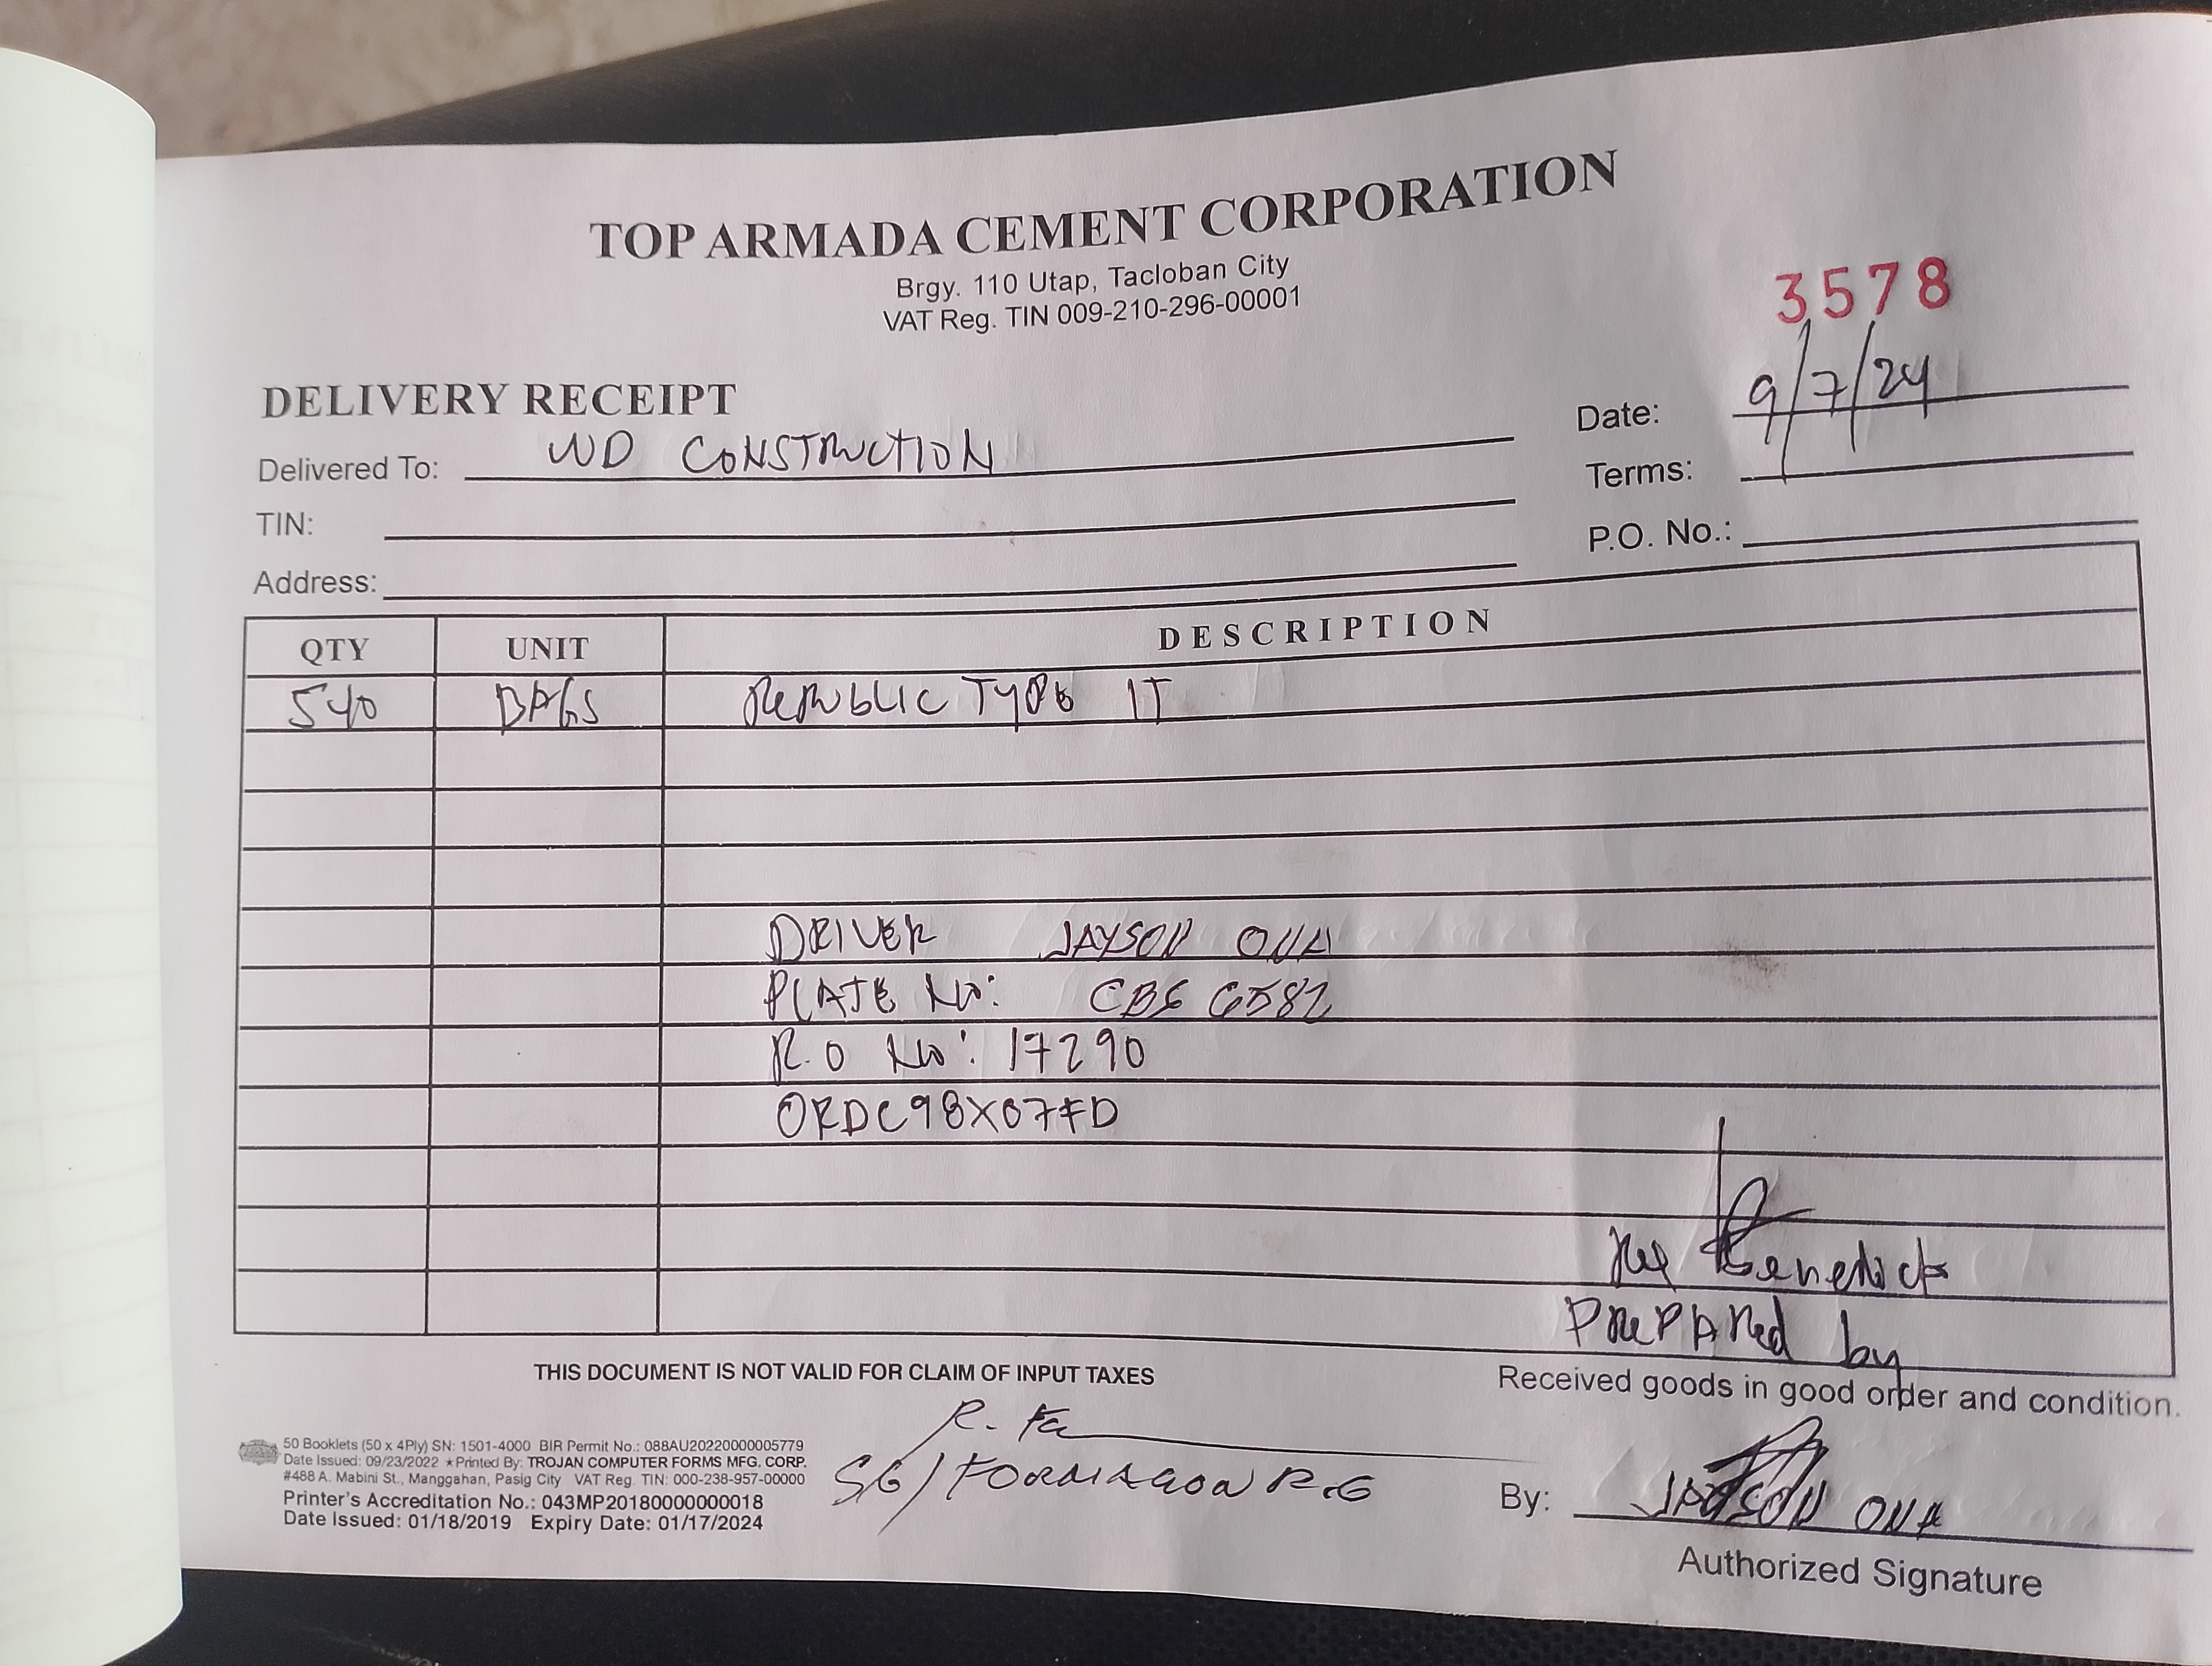 TOP ARMADA CEMENT CORPORATION
Brgy. 110 Utap, Tacloban City
VAT Reg. TIN 009-210-296-00001
3578
DELIVERY RECEIPT
Date: 9/7/24
Delivered To: WD CONSTRUCTION
Terms:
TIN:
P.O. No.:
Address:
QTY UNIT DESCRIPTION
540 BAGS REPUBLIC TYPE 1T
DRIVER JAYSON ONA
PLATE No: CBS 6582
R.O No: 17290
ORDC98X07FD
Benedict
PREPARed by
THIS DOCUMENT IS NOT VALID FOR CLAIM OF INPUT TAXES
Received goods in good order and condition.
50 Booklets (50 x 4Ply) SN: 1501-4000 BIR Permit No.: 088AU20220000005779
Date Issued: 09/23/2022 ★Printed By: TROJAN COMPUTER FORMS MFG. CORP.
#488 A. Mabini St., Manggahan, Pasig City VAT Reg. TIN: 000-238-957-00000
Printer's Accreditation No.: 043MP20180000000018
Date Issued: 01/18/2019 Expiry Date: 01/17/2024
SG/ R.G
By: JAYSON ONA
Authorized Signature